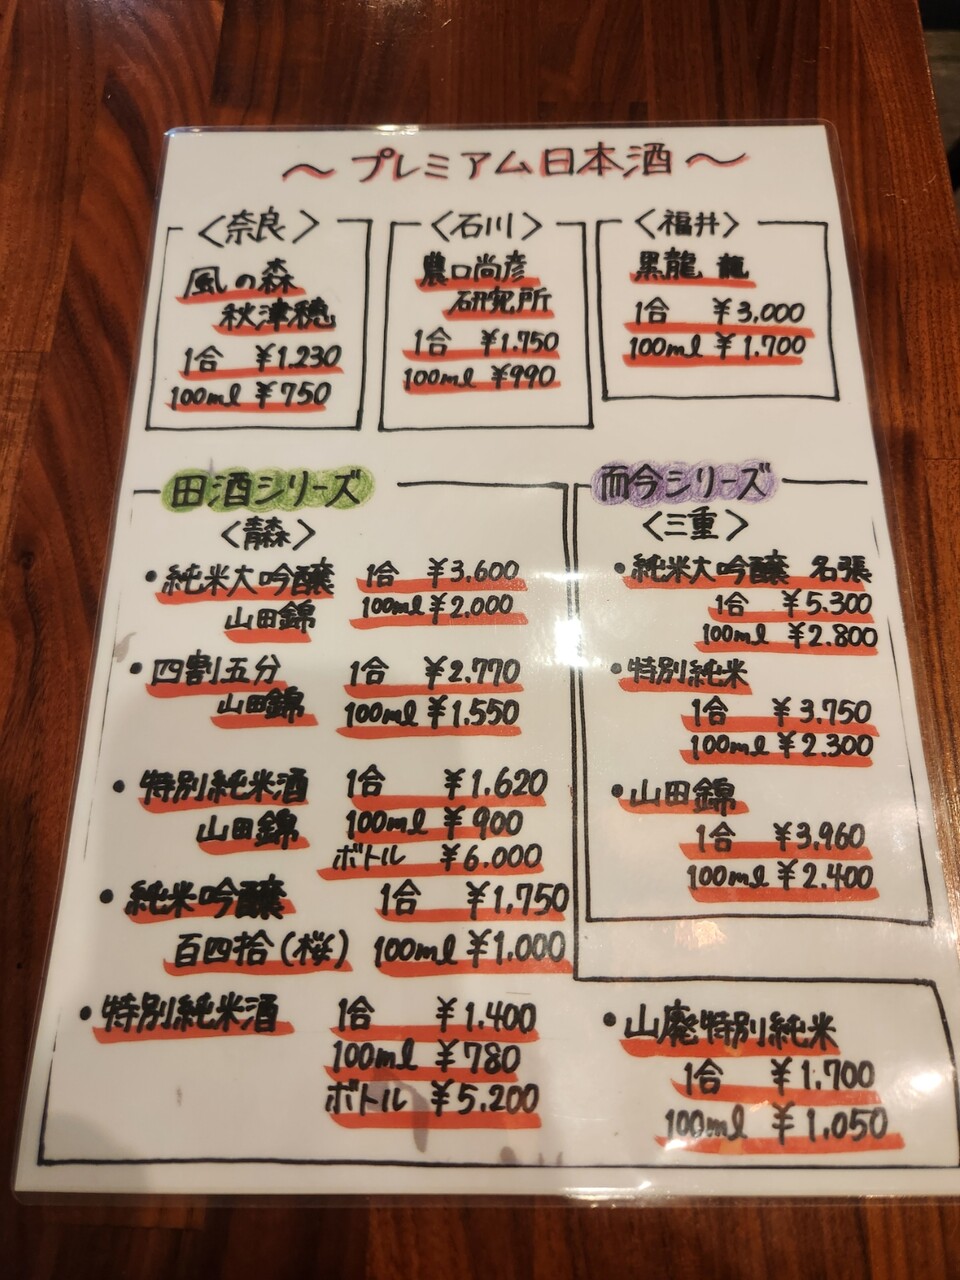 〜プレミアム日本酒〜
〈奈良〉
風の森
秋津穂
1合 ¥1.230
100ml ¥750
〈石川〉
農口尚彦
研究所
1合 ¥1.750
100ml ¥990
〈福井〉
黒龍 龍
1合 ¥3,000
100ml ¥1.700
田酒シリーズ
〈青森〉
・純米大吟醸 1合 ¥3.600
山田錦 100ml ¥2.000
・四割五分 1合 ¥2.770
山田錦 100ml ¥1.550
・特別純米酒 1合 ¥1.620
山田錦 100ml ¥900
ボトル ¥6.000
・純米吟醸 1合 ¥1,750
百四拾(桜) 100ml ¥1.000
・特別純米酒 1合 ¥1.400
100ml ¥780
ボトル ¥5.200
・山廃特別純米
1合 ¥1.700
100ml ¥1.050
而今シリーズ
〈三重〉
・純米大吟醸 名張
1合 ¥5.300
100ml ¥2.800
・特別純米
1合 ¥3.750
100ml ¥2.300
・山田錦
1合 ¥3.960
100ml ¥2.400